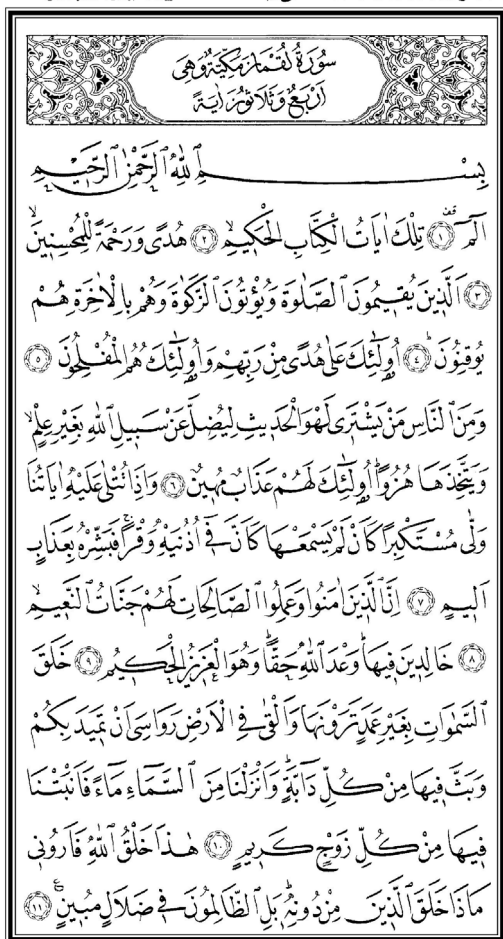 سُورَةُ لُقْمَانَ مَكِّيَّةٌ وَهِيَ
اَرْبَعٌ وَثَلَاثُونَ اٰيَةً
بِسْمِ اللّٰهِ الرَّحْمٰنِ الرَّحِيمِ
الٓمٓ ۚ ﴿١﴾ تِلْكَ اٰيَاتُ الْكِتَابِ الْحَكِيمِۙ ﴿٢﴾ هُدًى وَرَحْمَةً لِلْمُحْسِنِينَۙ
﴿٣﴾ اَلَّذِينَ يُقِيمُونَ الصَّلٰوةَ وَيُؤْتُونَ الزَّكٰوةَ وَهُمْ بِالْاٰخِرَةِ هُمْ
يُوقِنُونَۜ ﴿٤﴾ اُو۬لٰٓئِكَ عَلٰى هُدًى مِنْ رَبِّهِمْ وَاُو۬لٰٓئِكَ هُمُ الْمُفْلِحُونَ ﴿٥﴾
وَمِنَ النَّاسِ مَنْ يَشْتَرِى لَهْوَ الْحَدِيثِ لِيُضِلَّ عَنْ سَبِيلِ اللّٰهِ بِغَيْرِ عِلْمٍۙ
وَيَتَّخِذَهَا هُزُوًاۜ اُو۬لٰٓئِكَ لَهُمْ عَذَابٌ مُهِينٌ ﴿٦﴾ وَاِذَا تُتْلٰى عَلَيْهِ اٰيَاتُنَا
وَلّٰى مُسْتَكْبِرًا كَاَنْ لَمْ يَسْمَعْهَا كَاَنَّ فِٓى اُذُنَيْهِ وَقْرًاۚ فَبَشِّرْهُ بِعَذَابٍ
اَلِيمٍ ﴿٧﴾ اِنَّ الَّذِينَ اٰمَنُوا وَعَمِلُوا الصَّالِحَاتِ لَهُمْ جَنَّاتُ النَّعِيمِۙ
﴿٨﴾ خَالِدِينَ فِيهَاۜ وَعْدَ اللّٰهِ حَقًّاۜ وَهُوَ الْعَزِيزُ الْحَكِيمُ ﴿٩﴾ خَلَقَ
السَّمٰوَاتِ بِغَيْرِ عَمَدٍ تَرَوْنَهَا وَاَلْقٰى فِى الْاَرْضِ رَوَاسِىَ اَنْ تَمِيدَ بِكُمْ
وَبَثَّ فِيهَا مِنْ كُلِّ دَٓابَّةٍۜ وَاَنْزَلْنَا مِنَ السَّمَٓاءِ مَٓاءً فَاَنْبَتْنَا
فِيهَا مِنْ كُلِّ زَوْجٍ كَرِيمٍ ﴿١٠﴾ هٰذَا خَلْقُ اللّٰهِ فَاَرُونِى
مَاذَا خَلَقَ الَّذِينَ مِنْ دُونِهِۜ بَلِ الظَّالِمُونَ فِى ضَلَالٍ مُبِينٍ۟ ﴿١١﴾